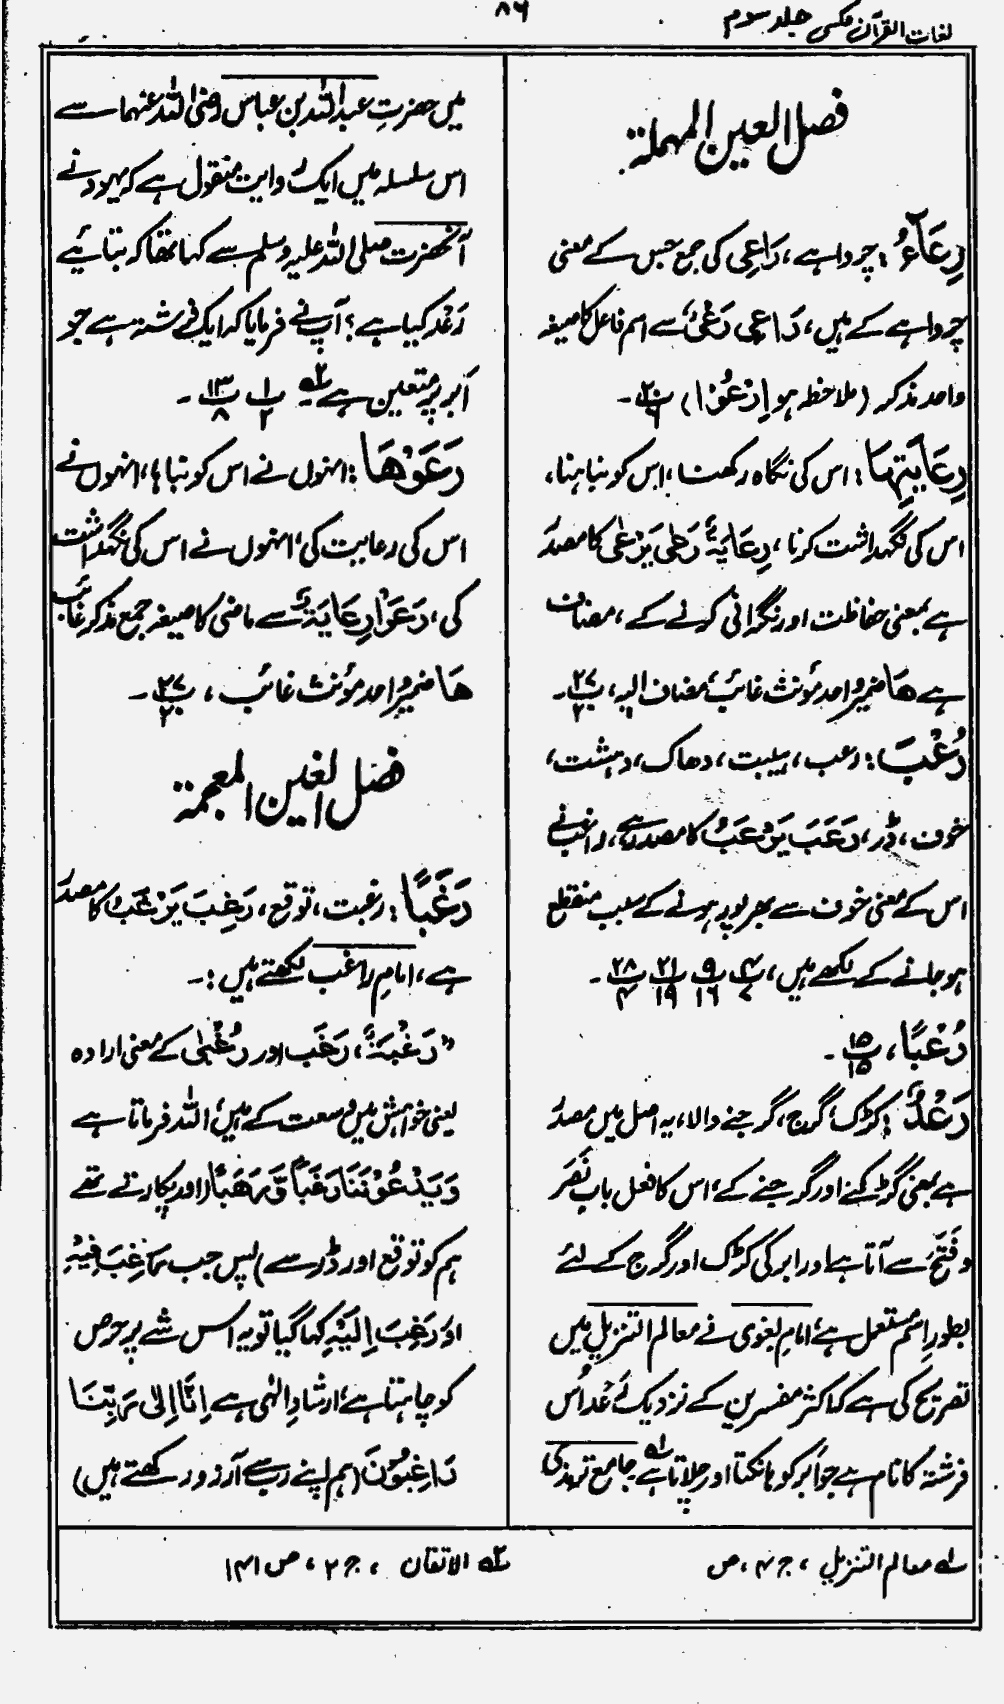 لغات القرآن عکسی جلد سوم
۸۶
فصل العین المہملۃ
رِعَآءٌ : چرواہے، رَاعِی کی جمع جس کے معنی
چرواہے کے ہیں، رَاعِی رَعْیٌ سے اسم فاعل کا صیغہ
واحد مذکر (ملاحظہ ہو اِرْعَوْا) پ۲۰ ۔
رِعَایَتِہَا : اس کی نگاہ رکھنا، اس کو نباہنا،
اس کی نگہداشت کرنا، رِعَایَۃٌ رَعٰی یَرْعٰی کا مصدر
ہے بمعنی حفاظت اور نگرانی کرنے کے، مضاف
ہے ھَا ضمیر واحد مؤنث غائب، مضاف الیہ، پ۲۷ ۲۰ ۔
رُعْبَ : رعب، ہیبت، دھاک، دہشت،
خوف، ڈر، رَعَبَ یَرْعَبُ کا مصدر ہے، راغب نے
اس کے معنی خوف سے بھرپور ہونے کے سبب منقطع
ہو جانے کے لکھے ہیں، پ۴ ۷ پ۹ ۱۶ پ۲۱ ۱۹ پ۲۸ ۴ ۔
رُعْبًا، پ۱۵ ۱۵ ۔
رَعْدٌ : کڑک، گرج، گرجنے والا، یہ اصل میں مصدر
ہے بمعنی کڑکنے اور گرجنے کے، اس کا فعل باب نَصَرَ
و فَتَحَ سے آتا ہے اور ابر کی کڑک اور گرج کے لئے
بطور اسم مستعمل ہے، امام بغوی نے معالم التنزیل میں
تصریح کی ہے کہ اکثر مفسرین کے نزدیک رَعْد اُس
فرشتہ کا نام ہے جو ابر کو ہانکتا اور چلاتا ہے لہ جامع ترمذی
میں حضرت عبداللہ بن عباس رضی اللہ عنہما سے
اس سلسلہ میں ایک روایت منقول ہے کہ یہود نے
آنحضرت صلی اللہ علیہ وسلم سے کہا تھا کہ بتائیے
رَعْد کیا ہے؟ آپ نے فرمایا کہ ایک فرشتہ ہے جو
ابر پر متعین ہے ۲ہ پ۱ ۲ پ۱۳ ۸ ۔
رَعَوْھَا : انہوں نے اس کو نباہا، انہوں نے
اس کی رعایت کی، انہوں نے اس کی نگہداشت
کی، رَعَوْا رِعَایَۃٌ سے ماضی کا صیغہ جمع مذکر غائب
ھَا ضمیر واحد مؤنث غائب، پ۲۷ ۲۰ ۔
فصل الغین المعجمۃ
رَغَبًا : رغبت، توقع، رَغِبَ یَرْغَبُ کا مصدر
ہے، امام راغب لکھتے ہیں :۔
”رَغْبَۃٌ، رَغَب اور رُغْبٰی کے معنی ارادہ
یعنی خواہش میں وسعت کے ہیں، اللہ فرماتا ہے
وَیَدْعُوْنَنَا رَغَبًا وَّرَهَبًا (اور پکارتے تھے
ہم کو توقع اور ڈر سے) پس جب رَغِبَ فِیْہِ
اور رَغِبَ اِلَیْہِ کہا گیا تو یہ اس شے پر حرص
کو چاہتا ہے، ارشاد الٰہی ہے اِنَّآ اِلٰی رَبِّنَا
رَاغِبُوْنَ (ہم اپنے رب سے آرزو رکھتے ہیں)
لہ معالم التنزیل، ج ۴، ص
۲ہ الاتقان، ج ۲، ص ۱۴۱